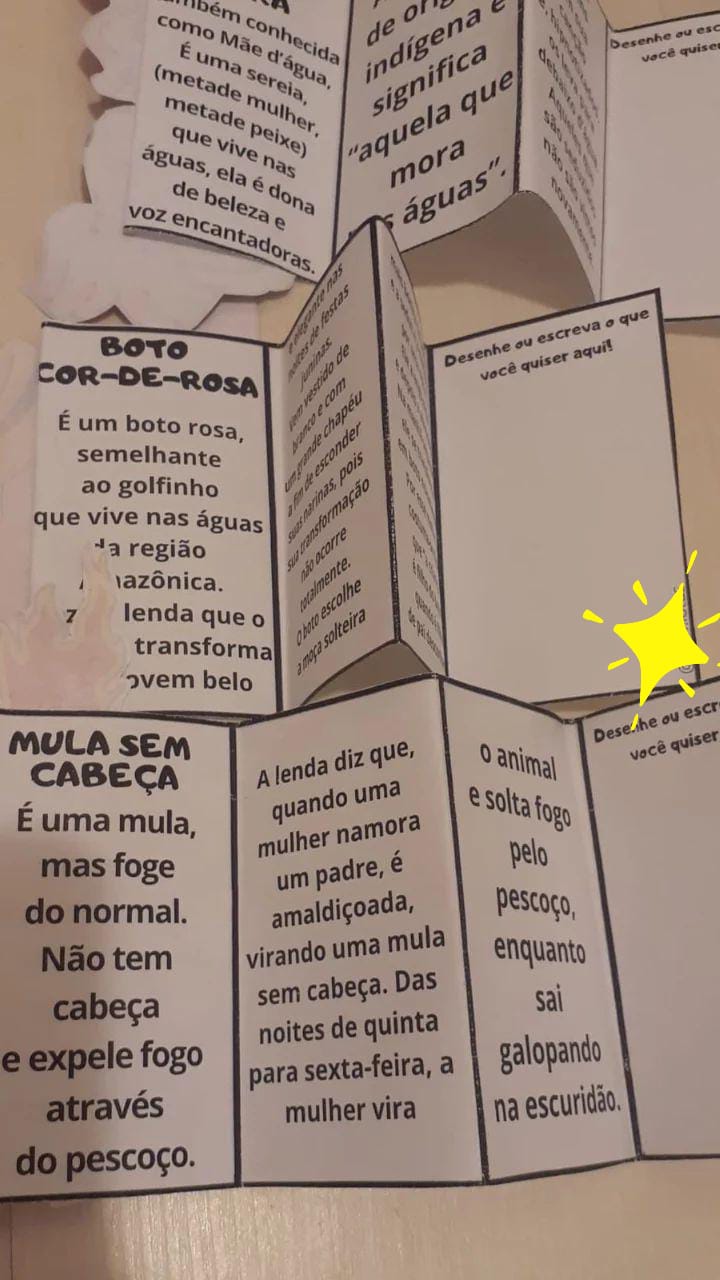 também conhecida
como Mãe d'água,
É uma sereia,
(metade mulher,
metade peixe)
que vive nas
águas, ela é dona
de beleza e
voz encantadoras.
indígena e
significa
“aquela que
mora
águas”.
Desenhe ou
você quiser
BOTO
COR-DE-ROSA
É um boto rosa,
semelhante
ao golfinho
que vive nas águas
da região
lenda que o
transforma
belo
e elegante nas
noites de festas
juninas.
Vem vestido de
branco e com
um grande chapéu
a fim de esconder
suas narinas, pois
sua transformação
não ocorre
totalmente.
O boto escolhe
a moça solteira
Desenhe ou escreva o que
você quiser aqui!
MULA SEM
CABEÇA
É uma mula,
mas foge
do normal.
Não tem
cabeça
e expele fogo
através
do pescoço.
A lenda diz que,
quando uma
mulher namora
um padre, é
amaldiçoada,
virando uma mula
sem cabeça. Das
noites de quinta
para sexta-feira, a
mulher vira
o animal
e solta fogo
pelo
pescoço,
enquanto
sai
galopando
na escuridão.
Desenhe ou
você quiser